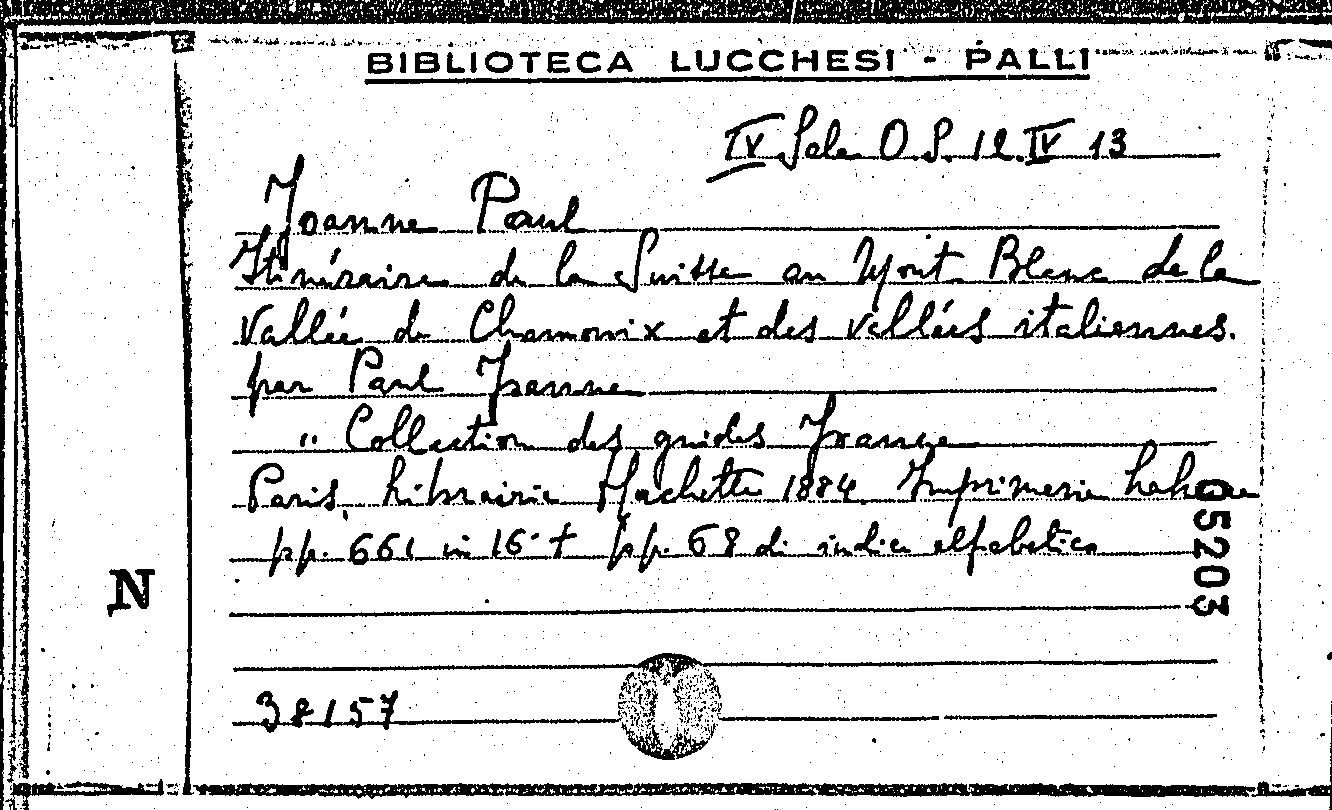 BIBLIOTECA LUCCHESI - PALLI
IV Sala O.S. 12. IV 13
Joanne Paul
Itinéraire de la Suisse au Mont Blanc de la
Vallée de Chamonix et des vallées italiennes.
par Paul Joanne
" Collection des guides Joanne
Paris, Librairie Hachette 1884. Imprimerie Lahure
pp. 661 in 16° + pp. 68 di indice alfabetico
05203
N
38157